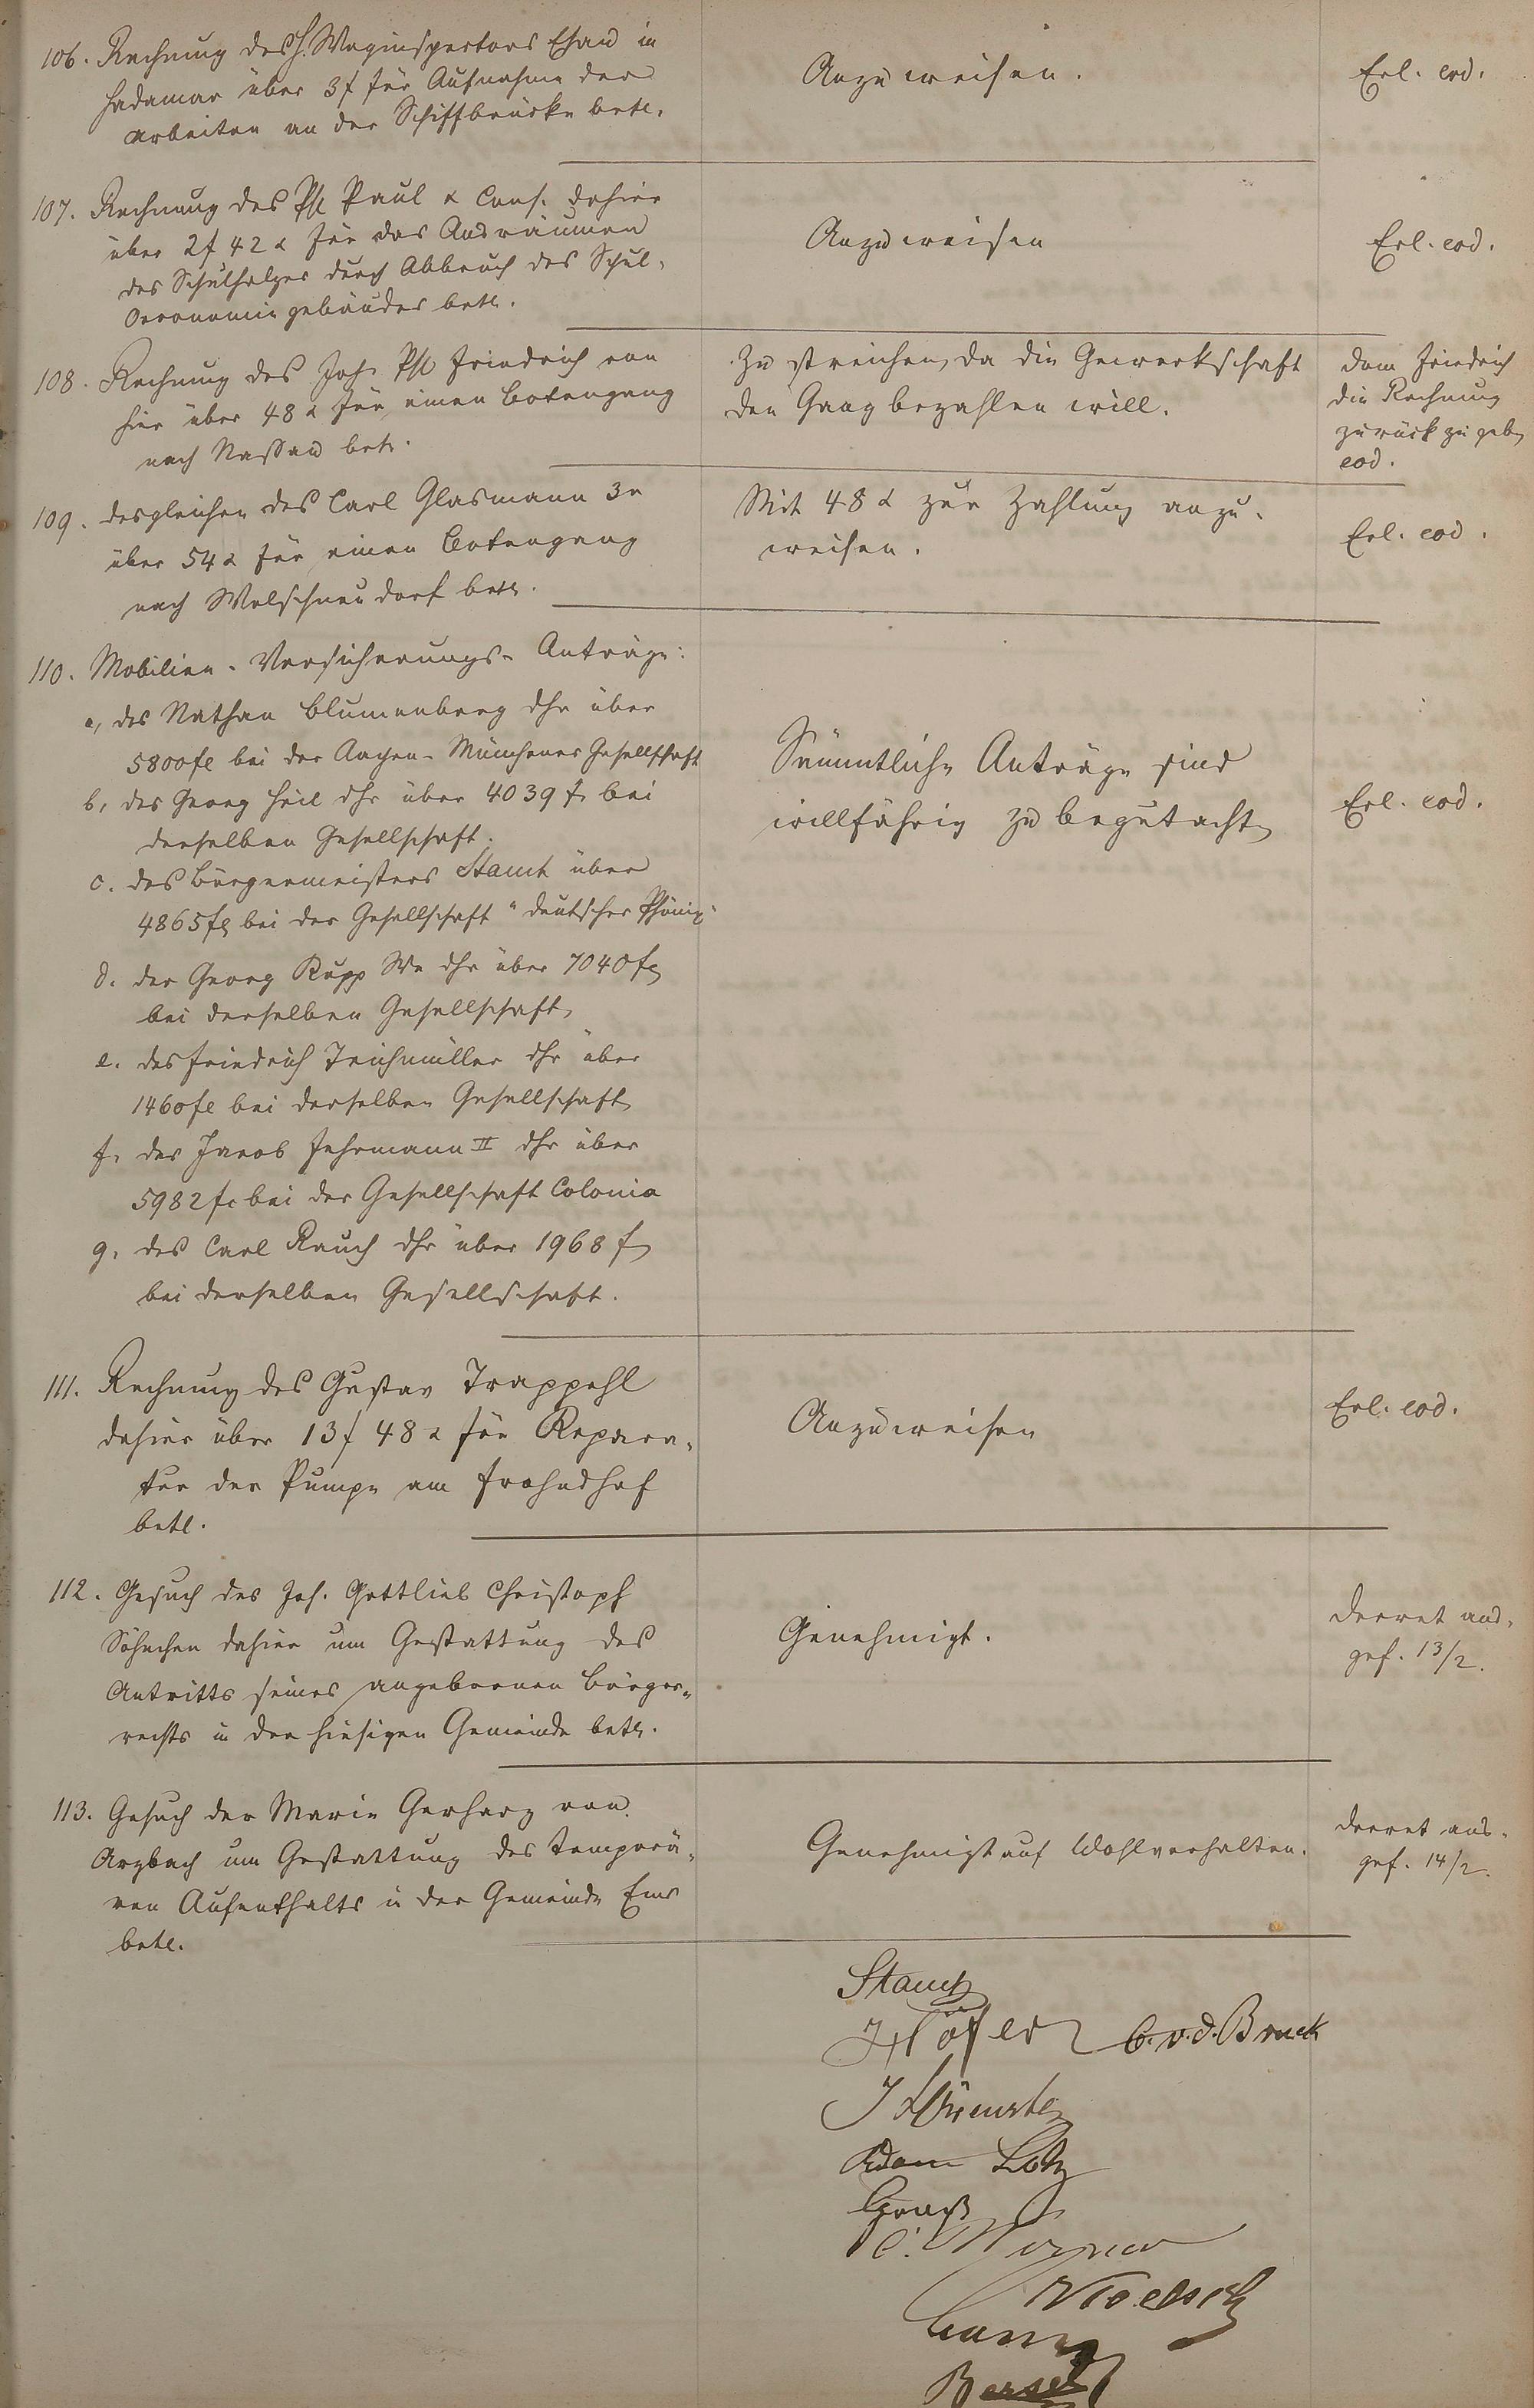 106. Rechnung des H. Weginspectors Chad in
Hadamar über 3 f für Aufnahme der
Arbeiten an der Schiffbrücke betr.
Anzuweisen.
Erl. eod.
107. Rechnung des Ph Paul & Cons. dahier
über 2 f 42 x für das Ausräumen
des Schulholzes durch Abbruch des Schul-
Oeconomiegebäudes betr.
Anzuweisen
Erl. eod.
108. Rechnung des Joh. Ph Friedrich von
hier über 48 x für einen Botengang
nach Nassau betr.
Zu streichen, da die Gewerkschaft
den Gang bezahlen will.
Dem Friedrich
die Rechnung
zurück zu geben
eod.
109. desgleichen des Carl Glasmann 3r
über 54 x für einen Botengang
nach Welschneudorf betr.
Mit 48 x zur Zahlung anzu-
weisen.
Erl. eod.
110. Mobilien-Versicherungs-Anträge:
a, des Nathan Blumenberg dhr über
5800 fl bei der Aachen-Münchener Gesellschaft
b, des Georg Heil dhr über 4039 f bei
derselben Gesellschaft.
c. des Bürgermeisters Stamt über
4865 fl bei der Gesellschaft "deutscher Phönix"
d. der Georg Rupp We dhr über 7040 fl
bei derselben Gesellschaft,
e. des Friedrich Teichmüller dhr über
1460 fl bei derselben Gesellschaft
f. des Jacob Fehrmann II dhr über
5982 fl bei der Gesellschaft Colonia
g. des Carl Rauch dhr über 1968 f
bei derselben Gesellschaft.
Sämmtliche Anträge sind
willfährig zu begutachten
Erl. eod.
111. Rechnung des Gustav Trappehl
dahier über 13 f 48 x für Repara-
tur der Pumpe am Frohndhof
betr.
Anzuweisen
Erl. eod.
112. Gesuch des Joh. Gottlieb Christoph
Söhnchen dahier um Gestattung des
Antritts seines angebornen Bürger-
rechts in der hiesigen Gemeinde betr.
Genehmigt.
Decret aus-
gef. 13/2.
113. Gesuch der Marie Gerharz von
Arzbach um Gestattung des temporä-
ren Aufenthalts in der Gemeinde Ems
betr.
Genehmigt auf Wohlverhalten.
Decret aus-
gef. 14/2.
Stamt
Höfer C. v. d. Bruck
Adam Lotz